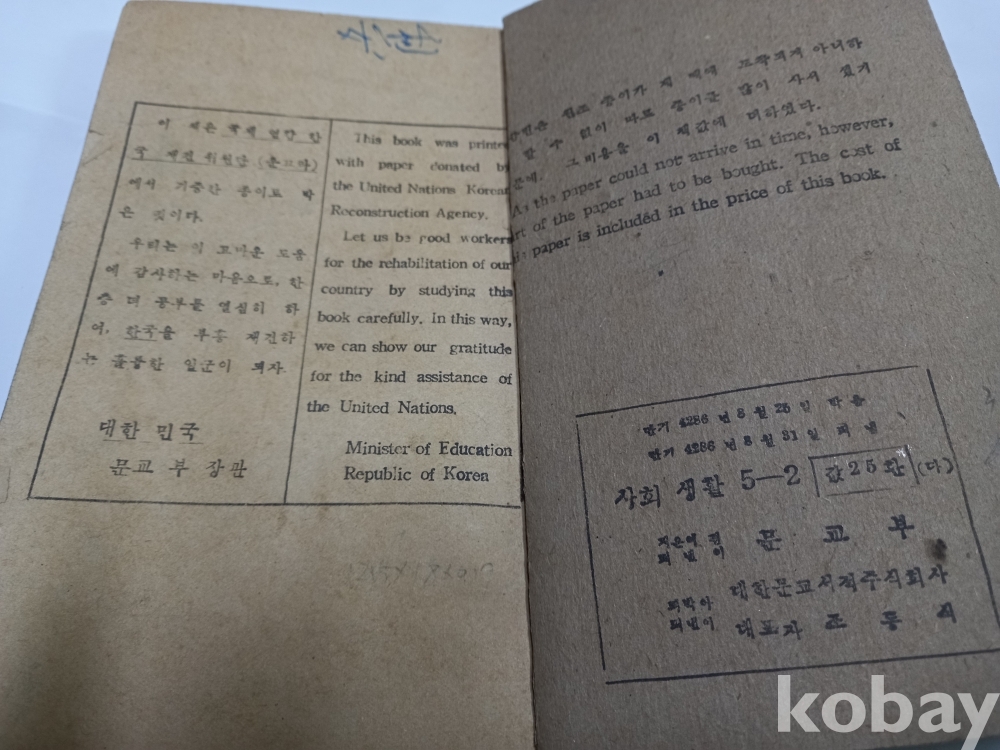 이 책은 국제 연합 한
국 재건 위원단 (운끄라)
에서 기증한 종이로 박
은 것이다.
우리는 이 고마운 도움
에 감사하는 마음으로, 한
층 더 공부를 열심히 하
여, 한국을 부흥 재건하
는 훌륭한 일군이 되자
대한 민국
문교 부 장관
This book was printed
with paper donated by
the United Nations Korean
Reconstruction Agency.
Let us be good workers
for the rehabilitation of our
country by studying this
book carefully. In this way,
we can show our gratitude
for the kind assistance of
the United Nations.
Minister of Education
Republic of Korea
원조 종이가 제 때에 도착되지 아니하
할 수 없이 따로 종이를 많이 사서 썼기
문에, 그 비용을 이 책값에 더하였다.
As the paper could not arrive in time, however,
art of the paper had to be bought. The cost of
paper is included in the price of this book.
단기 4286 년 8 월 25 일 박음
단기 4286 년 8 월 31 일 펴냄
사회 생활 5—2 값 25 환 (다)
지은이 겸
펴낸이 문 교 부
박아
펴낸이 대한문교서적주식회사
대표자 조 동 식
kobay